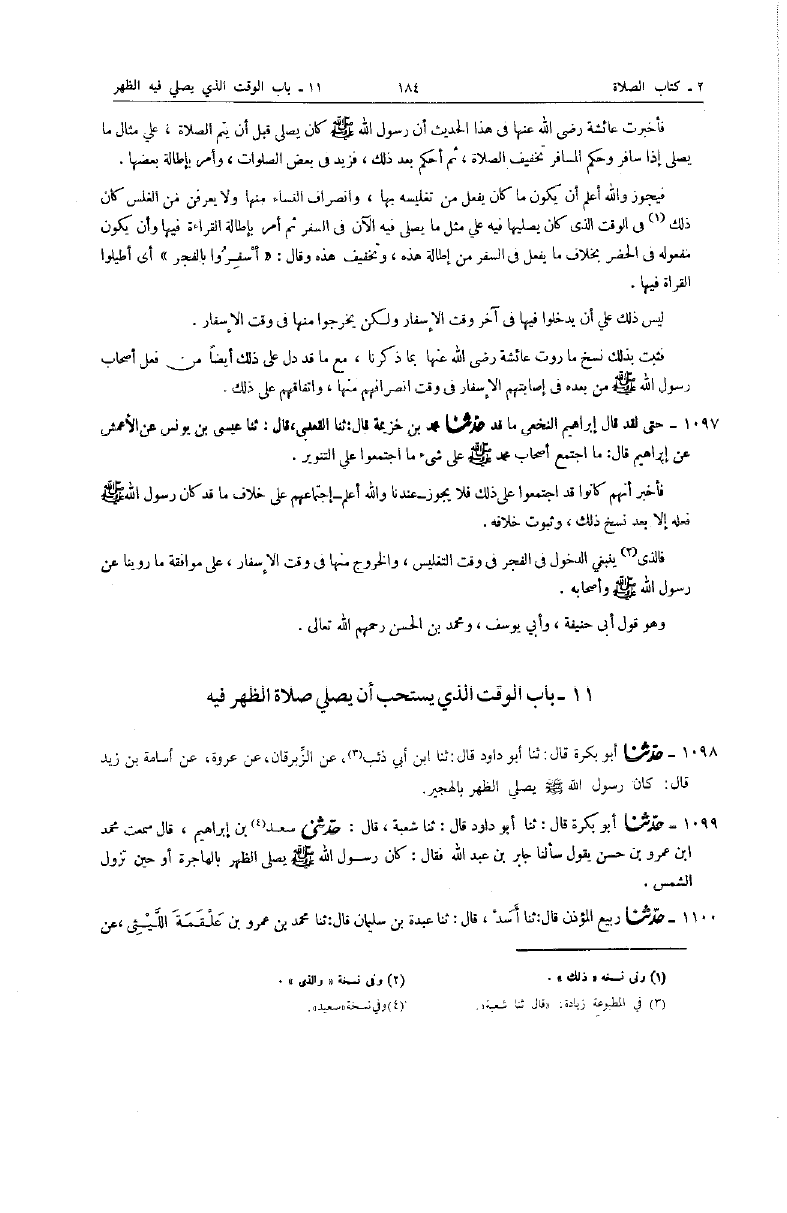 ٢ - كتاب الصلاة ١٨٤ ١١ - باب الوقت الذي يصلي فيه الظهر
فأخبرت عائشة رضى الله عنها فى هذا الحديث أن رسول الله ﷺ كان يصلى قبل أن يتم الصلاة ، علي مثال ما
يصلى إذا سافر وحكم المسافر تخفيف الصلاة ، ثم أحكم بعد ذلك ، فزيد فى بعض الصلوات ، وأمر بإطالة بعضها .
فيجوز والله أعلم أن يكون ما كان يفعل من تغليسه بها ، وانصراف النساء منها ولا يعرفن من الغلس كان
ذلك (١) فى الوقت الذى كان يصليها فيه علي مثل ما يصلى فيه الآن فى السفر ثم أمر بإطالة القراءة فيها وأن يكون
مفعوله فى الحضر بخلاف ما يفعل فى السفر من إطالة هذه ، وتخفيف هذه وقال : « أسفِرُوا بالفجر » أى أطيلوا
القراة فيها .
ليس ذلك علي أن يدخلوا فيها فى آخر وقت الإسفار ولكن يخرجوا منها فى وقت الإسفار .
فثبت بذلك نسخ ما روت عائشة رضى الله عنها بما ذكرنا ، مع ما قد دل على ذلك أيضاً من فعل أصحاب
رسول الله ﷺ من بعده فى إصابتهم الإسفار فى وقت انصرافهم منها ، واتفاقهم على ذلك .
١٠٩٧ - حتى لقد قال إبراهيم النخعى ما قد حدثنا محمد بن خزيمة قال: ثنا القعنبى، قال : ثنا عيسى بن يونس عن الأعمش
عن إبراهيم قال: ما اجتمع أصحاب محمد ﷺ على شىء ما اجتمعوا علي التنوير .
فأخبر أنهم كانوا قد اجتمعوا على ذلك فلا يجوز_عندنا والله أعلم_إجتماعهم على خلاف ما قد كان رسول الله ﷺ
فعله إلا بعد نسخ ذلك ، وثبوت خلافه .
فالذى(٢) ينبغي الدخول فى الفجر فى وقت التغليس ، والخروج منها فى وقت الإسفار ، على موافقة ما روينا عن
رسول الله ﷺ وأصحابه .
وهو قول أبى حنيفة ، وأبي يوسف ، ومحمد بن الحسن رحمهم الله تعالى .
١١ - باب الوقت الذي يستحب أن يصلي صلاة الظهر فيه
١٠٩٨ - حدثنا أبو بكرة قال: ثنا أبو داود قال: ثنا ابن أبي ذئب(٣)، عن الزِّبرقان، عن عروة، عن أسامة بن زيد
قال: كان رسول الله ﷺ يصلي الظهر بالهجير.
١٠٩٩ - حدثنا أبو بكرة قال : ثنا أبو داود قال : ثنا شعبة ، قال : حدثنى سعد(٤) بن إبراهيم ، قال سمعت محمد
ابن عمرو بن حسن يقول سألنا جابر بن عبد الله فقال : كان رسول الله ﷺ يصلى الظهر بالهاجرة أو حين تزول
الشمس .
١١٠٠ - حدثنا ربيع المؤذن قال: ثنا أسَد ، قال : ثنا عبدة بن سليمان قال: ثنا محمد بن عمرو بن عَلْقَمَةَ اللَّيْثِى ، عن
(١) وفى نسخه « ذلك » . (٢) وفى نسخة « والذى » .
(٣) في المطبوعة زيادة: «قال ثنا شعبة». (٤) وفي نسخة «سعيد».